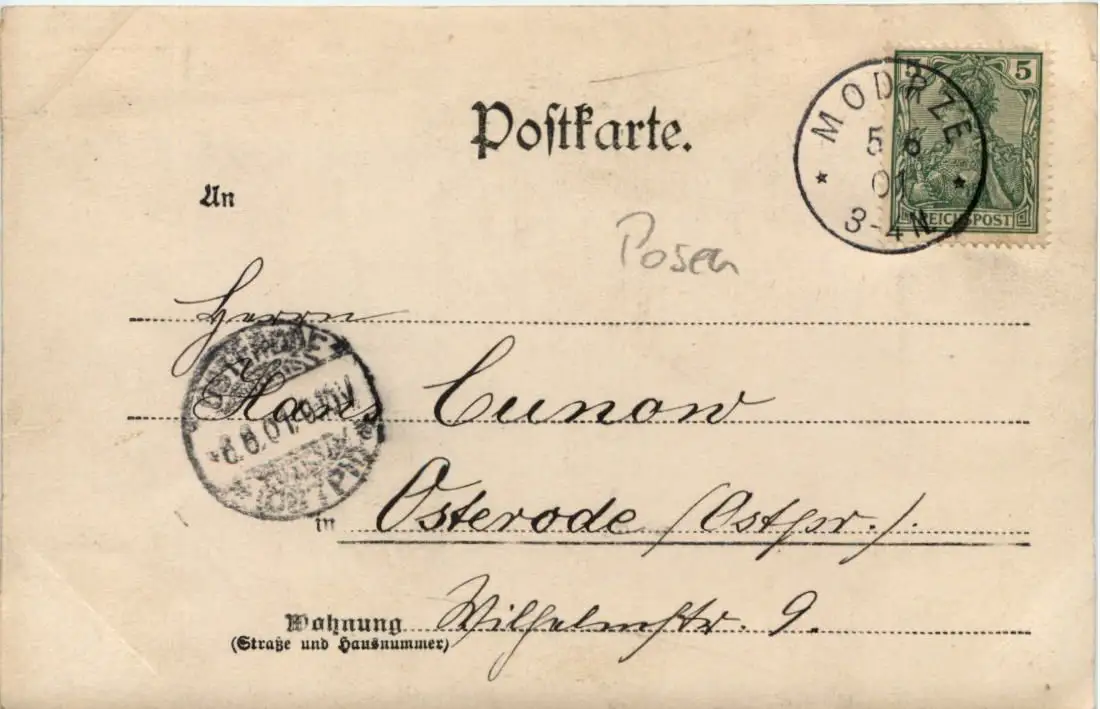 5 5
REICHSPOST
MODRZE
5 6
01
3-4N
Postkarte.
An
Posen
Herrn
Hans Cunow
in Osterode (Ostpr.).
Wohnung Wilhelmstr. 9.
(Straße und Hausnummer)
OSTERODE
6.6.01.
OSTPR.